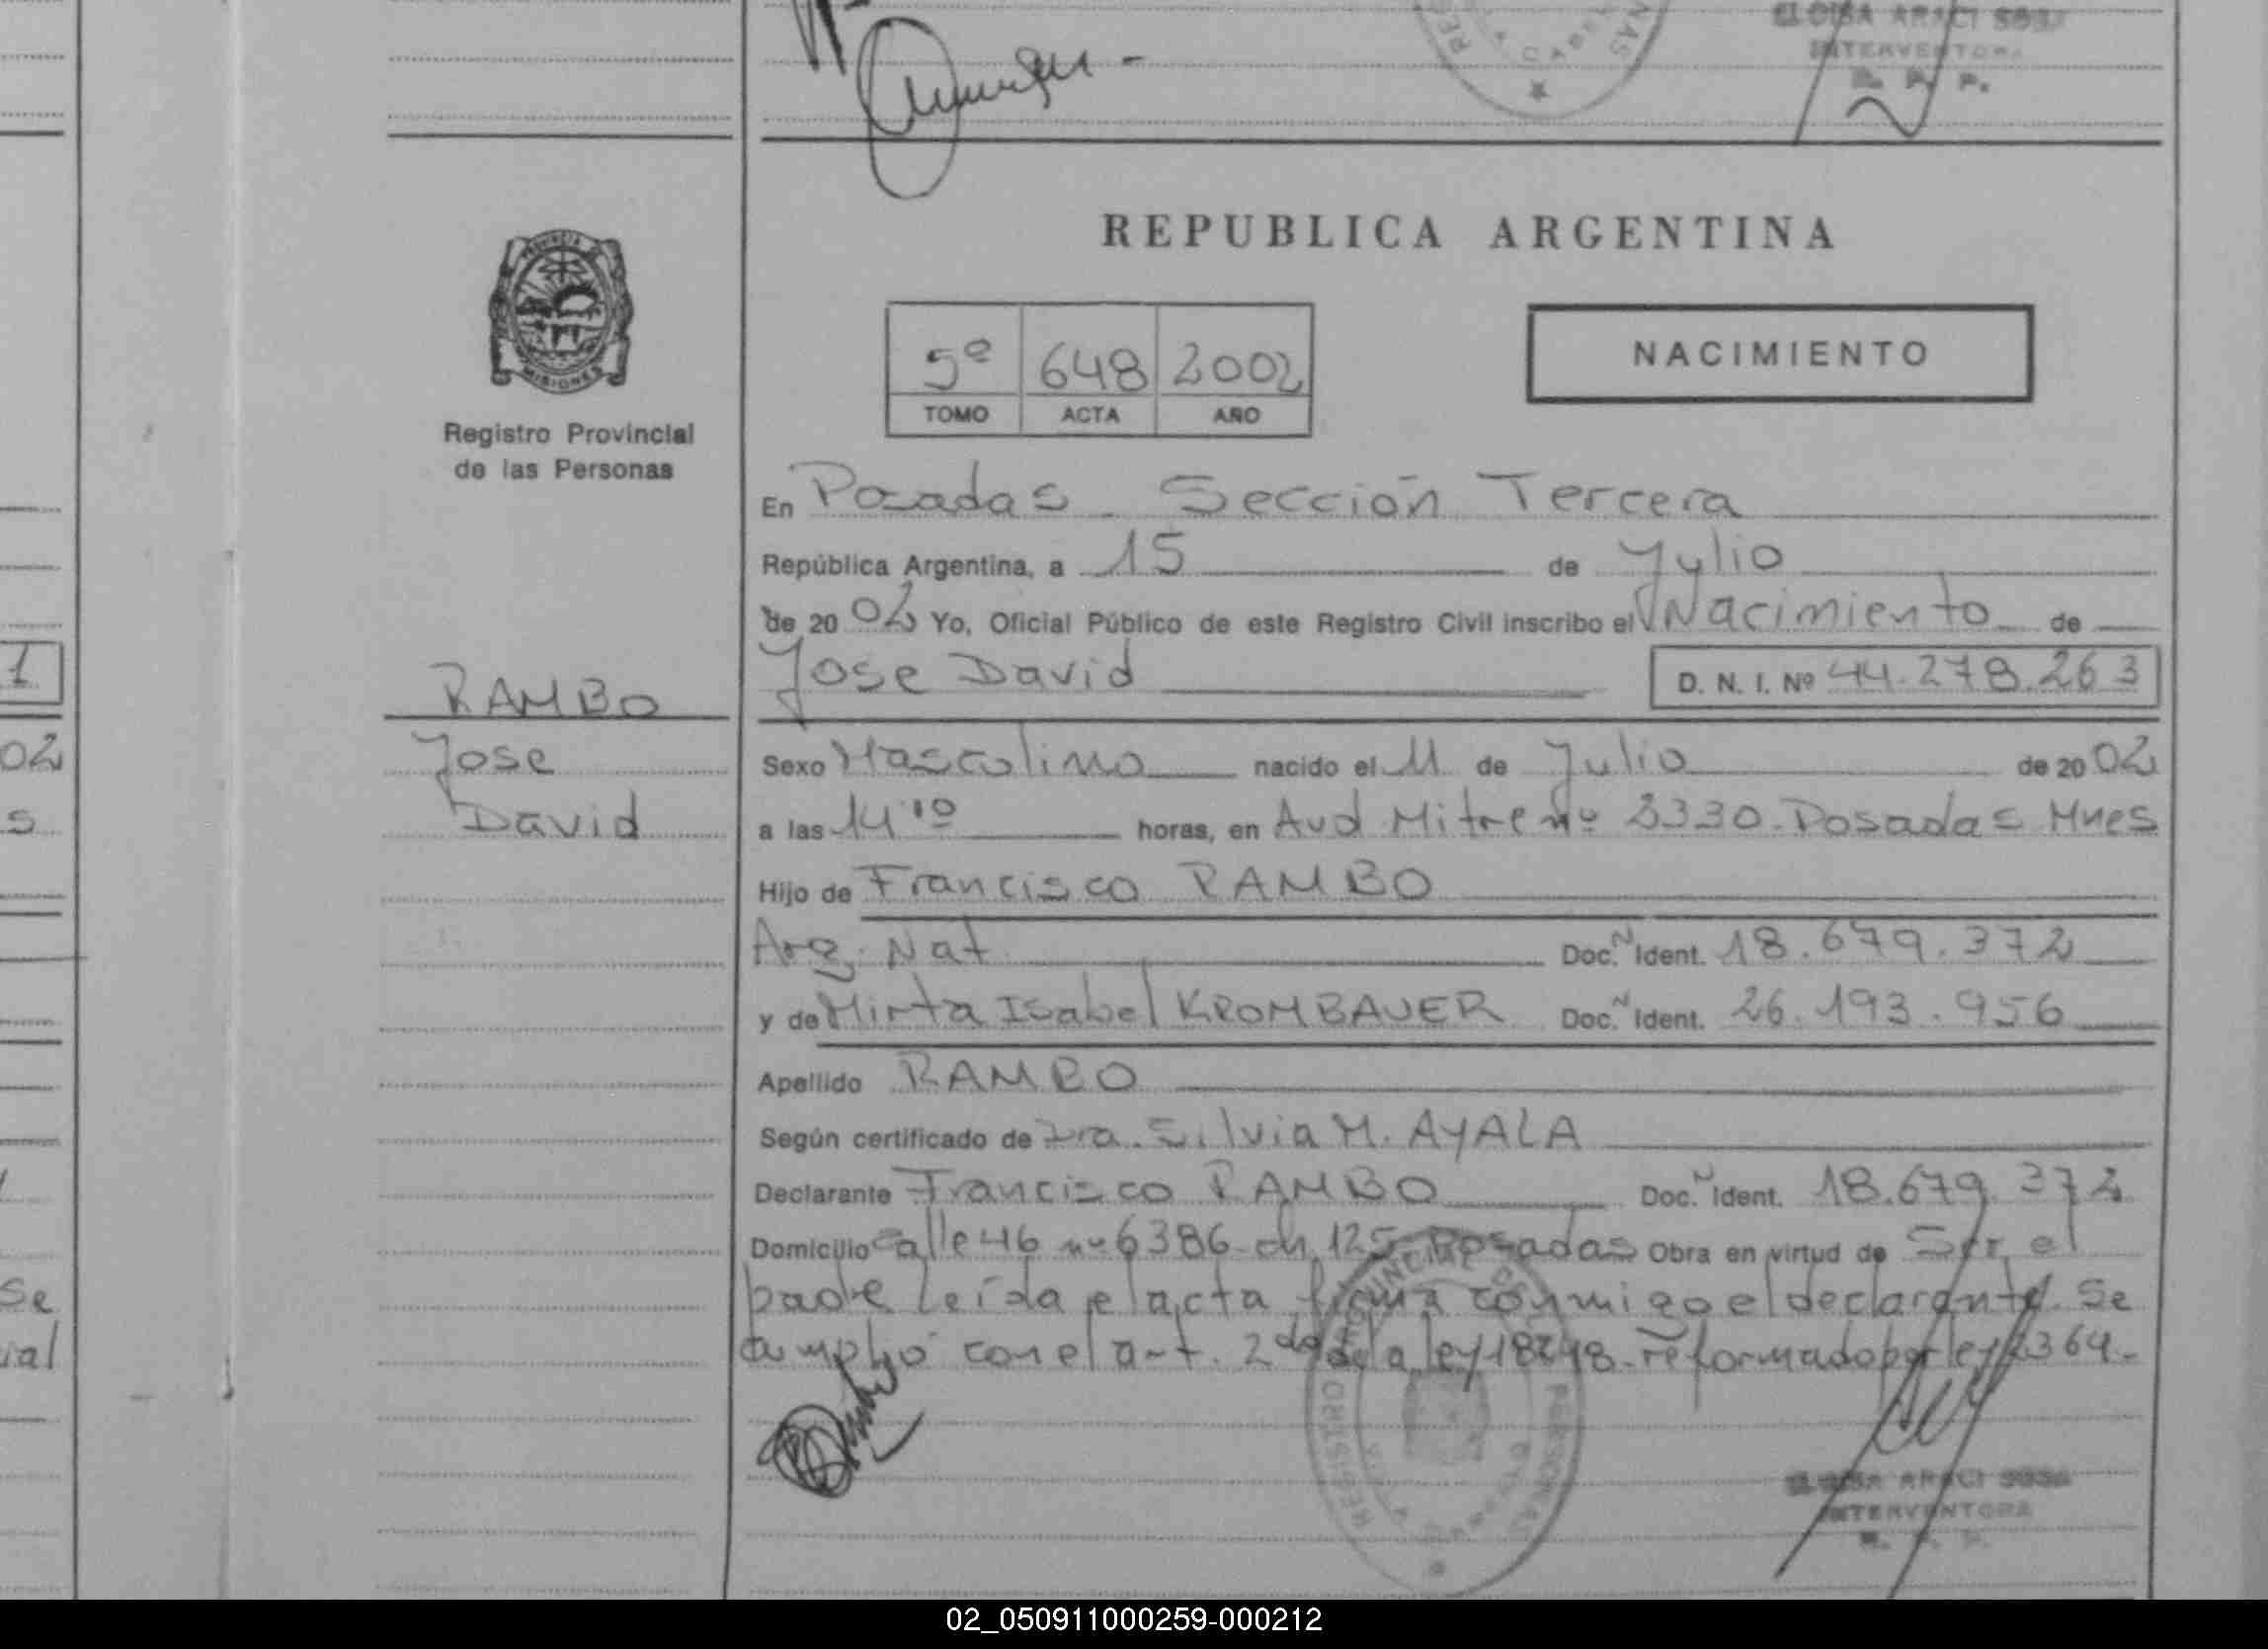 ELOISA ARACI SOSA
INTERVENTORA
R. P. P.
REPUBLICA ARGENTINA
PROVINCIA
MISIONES
Registro Provincial
de las Personas
5º 648 2002
TOMO ACTA AÑO
NACIMIENTO
En Posadas - Sección Tercera
República Argentina, a 15 de Julio
de 20 02 Yo, Oficial Público de este Registro Civil inscribo el Nacimiento de
Jose David D. N. I. Nº 44.278.263
1
RAMBO
02
Jose
David
s
Sexo Masculino nacido el 11 de Julio de 20 02
a las 14:10 horas, en Avd Mitre nº 2330. Posadas Mnes
Hijo de Francisco RAMBO
Arg. Nat Doc. N Ident. 18.679.372
y de Mirta Isabel KROMBAUER Doc. N Ident. 26.193.956
Apellido RAMBO
Según certificado de Dra. Silvia M. AYALA
Declarante Francisco RAMBO Doc. N Ident. 18.679.372
Domicilio Calle 46 nº 6386 ch. 125 Posadas Obra en virtud de Ser el
padre leída el acta firma conmigo el declarante. Se
cumplió con el art. 2do de la ley 18248. reformado por ley 23
Se
ial
ELOISA ARACI SOSA
INTERVENTORA
R. P. P.
02_050911000259-000212